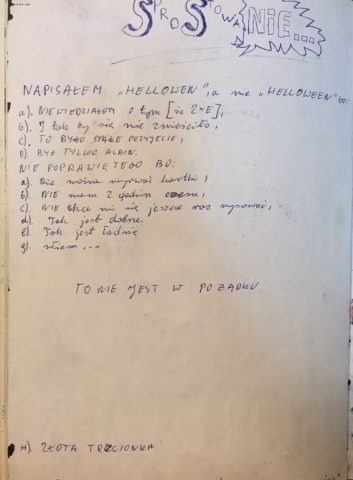 SPROSTOWANIE...
NAPISAŁEM „HELLOWEN", a nie „HELLOWEEN" bo:
a). NIEWIEDZIAŁEM o tym [że 2×E],
b). I tak by się nie zmieściło,
c). TO BYŁO MAŁE POZYJECIE,
D). BYŁ TYLKO ALBIN.
NIE POPRAWIĘ TEGO BO:
a). Nie można wyrwać kartki,
b). NIE mam 2 
c). NIE chce mi się jeszcze raz rysować,
d). Tak jest dobrze.
e). Tak jest ładnie
g). wiem...
TO NIE JEST W POŻĄDKU
H) ZŁOTA TRZCIONKA